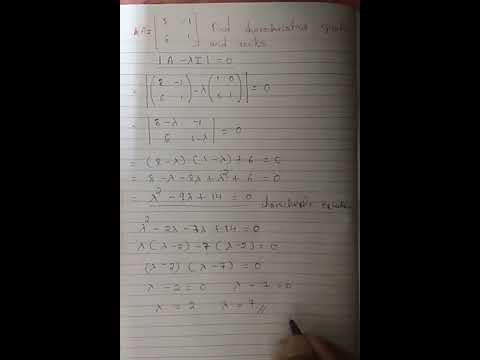 A = [8 -1
6 1] Find characteristic equation
and roots.
|A - λI| = 0
= |(8 -1
6 1) - λ(1 0
0 1)| = 0
= |8-λ -1
6 1-λ| = 0
= (8-λ)(1-λ) + 6 = 0
= 8 - λ - 8λ + λ² + 6 = 0
= λ² - 9λ + 14 = 0 characteristic equation
λ² - 2λ - 7λ + 14 = 0
λ(λ-2) - 7(λ-2) = 0
(λ-2)(λ-7) = 0
λ - 2 = 0 λ - 7 = 0
λ = 2 λ = 7 //